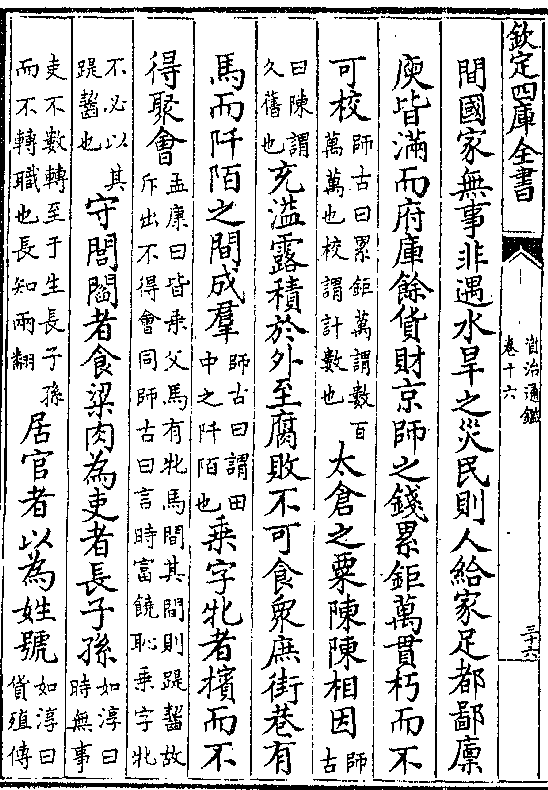 欽定四庫全書
資治通鑑
卷十六
三十六
間國家無事非遇水旱之災民則人給家足都鄙廩
庾皆滿而府庫餘貨財京師之錢累鉅萬貫朽而不
可校師古曰累鉅萬謂數百萬萬也校謂計數也太倉之粟陳陳相因師古
曰陳謂久舊也充溢露積於外至腐敗不可食衆庶街巷有
馬而阡陌之間成羣師古曰謂田中之阡陌也乗字牝者擯而不
得聚會孟康曰皆乗父馬有牝馬間其間則踶齧故斥出不得會同師古曰言時富饒恥乗字牝
不必以其踶齧也守閭閻者食粱肉為吏者長子孫如淳曰時無事
吏不數轉至于生長子孫而不轉職也長知兩翻居官者以為姓號如淳曰貨殖傳